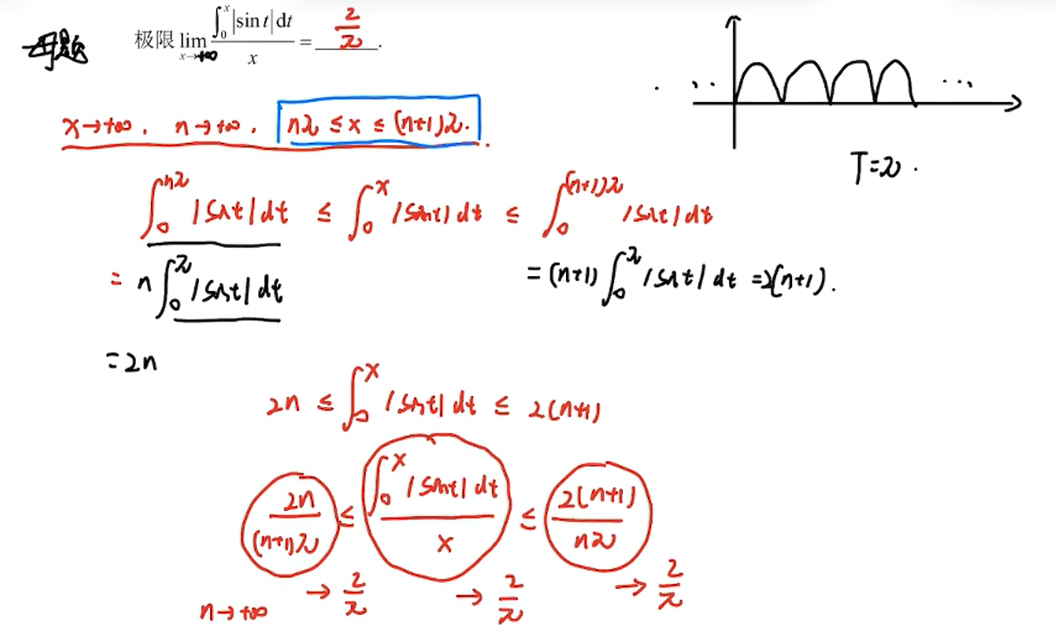 母题 极限 lim_{x→+∞} \frac{∫_0^x |sin t| dt}{x} = \frac{2}{π}.
x→+∞, n→+∞, nπ ≤ x ≤ (n+1)π.
T=π.
∫_0^{nπ} |sin t| dt ≤ ∫_0^x |sin t| dt ≤ ∫_0^{(n+1)π} |sin t| dt
= n∫_0^π |sin t| dt = (n+1)∫_0^π |sin t| dt = 2(n+1).
= 2n
2n ≤ ∫_0^x |sin t| dt ≤ 2(n+1)
\frac{2n}{(n+1)π} ≤ \frac{∫_0^x |sin t| dt}{x} ≤ \frac{2(n+1)}{nπ}
n→+∞ → \frac{2}{π} → \frac{2}{π} → \frac{2}{π}